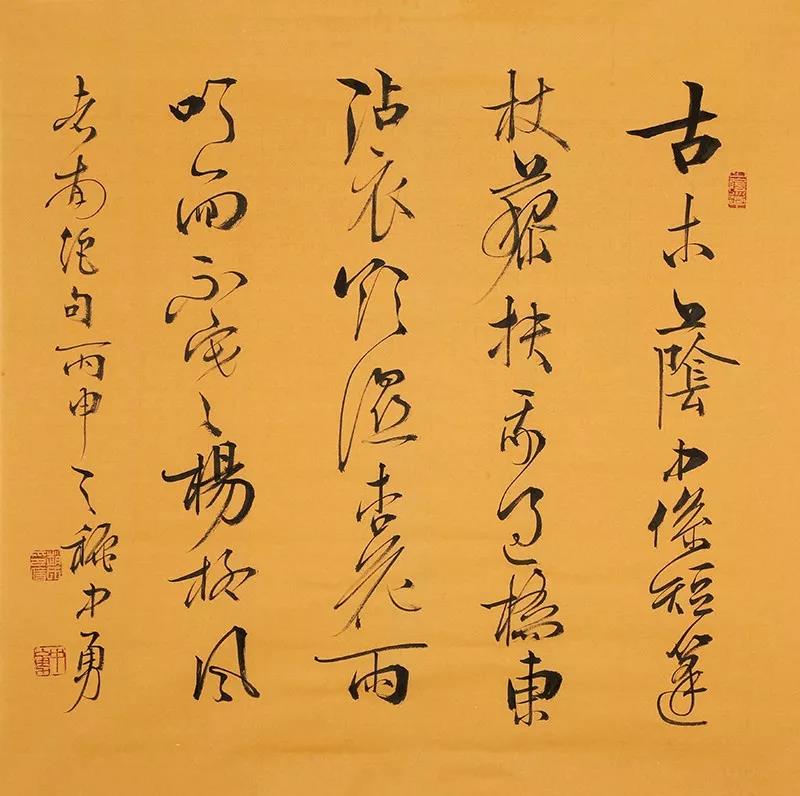 古木蔭中係短篷
杖藜扶我過橋東
沾衣欲濕杏花雨
吹面不寒楊柳風
志南絕句丙申之龝中勇